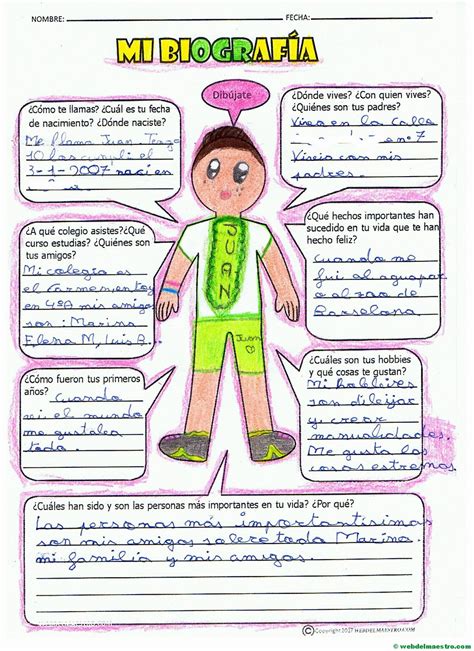 NOMBRE: FECHA:
MI BIOGRAFÍA
Dibújate
¿Cómo te llamas? ¿Cuál es tu fecha
de nacimiento? ¿Dónde naciste?
Me llamo Juan. Tengo
10 los cumplí el
3-1-2007 nací en
¿Dónde vives? ¿Con quien vives?
¿Quiénes son tus padres?
Vivo en la calla
nº 7
Vivio con mis
padres.
¿A qué colegio asistes? ¿Qué
curso estudias? ¿Quiénes son
tus amigos?
Mi colegio es
el Carmen y estoy
en 4ºA mis amigos
son: Marina
Elena M, Luis A...
¿Qué hechos importantes han
sucedido en tu vida que te han
hecho feliz?
Cuando me
fui al aguapar
o al zoo de
Barselona.
JUAN
Juan
¿Cómo fueron tus primeros
años? Cuando
ni el mundo
me gustaba
toda.
¿Cuáles son tus hobbies
y qué cosas te gustan?
Mi hobbies
son dibujar
y crear
manualidades.
Me gusta las
cosas estremas
¿Cuáles han sido y son las personas más importantes en tu vida? ¿Por qué?
Las personas más importantísimas
son mis amigos sobre todo Marina
mi familia y mis amigos.
© Copyright 2017 WEBDELMAESTRO.COM
© webdelmaestro.com